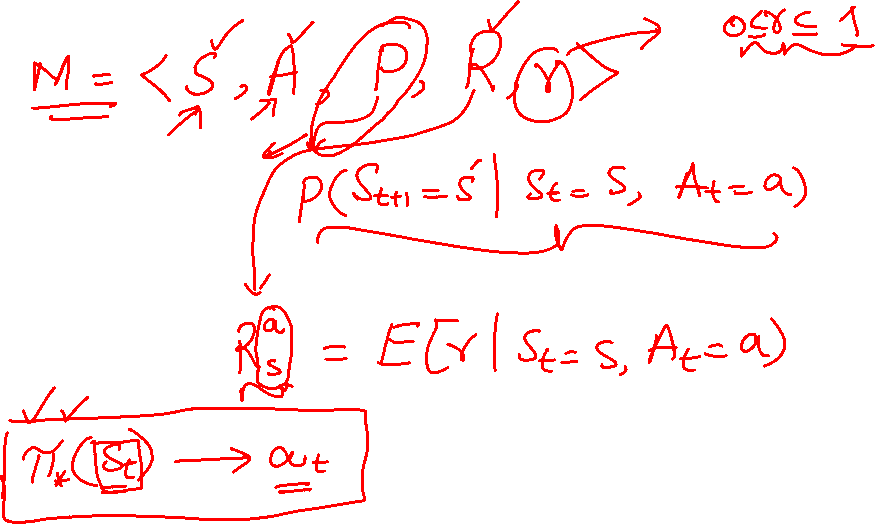 M = < S, A, P, R, γ > 0 ≤ γ ≤ 1
P(S_{t+1} = s' | S_t = s, A_t = a)
R^a_s = E[r | S_t = s, A_t = a)
π_*(S_t) → a_t